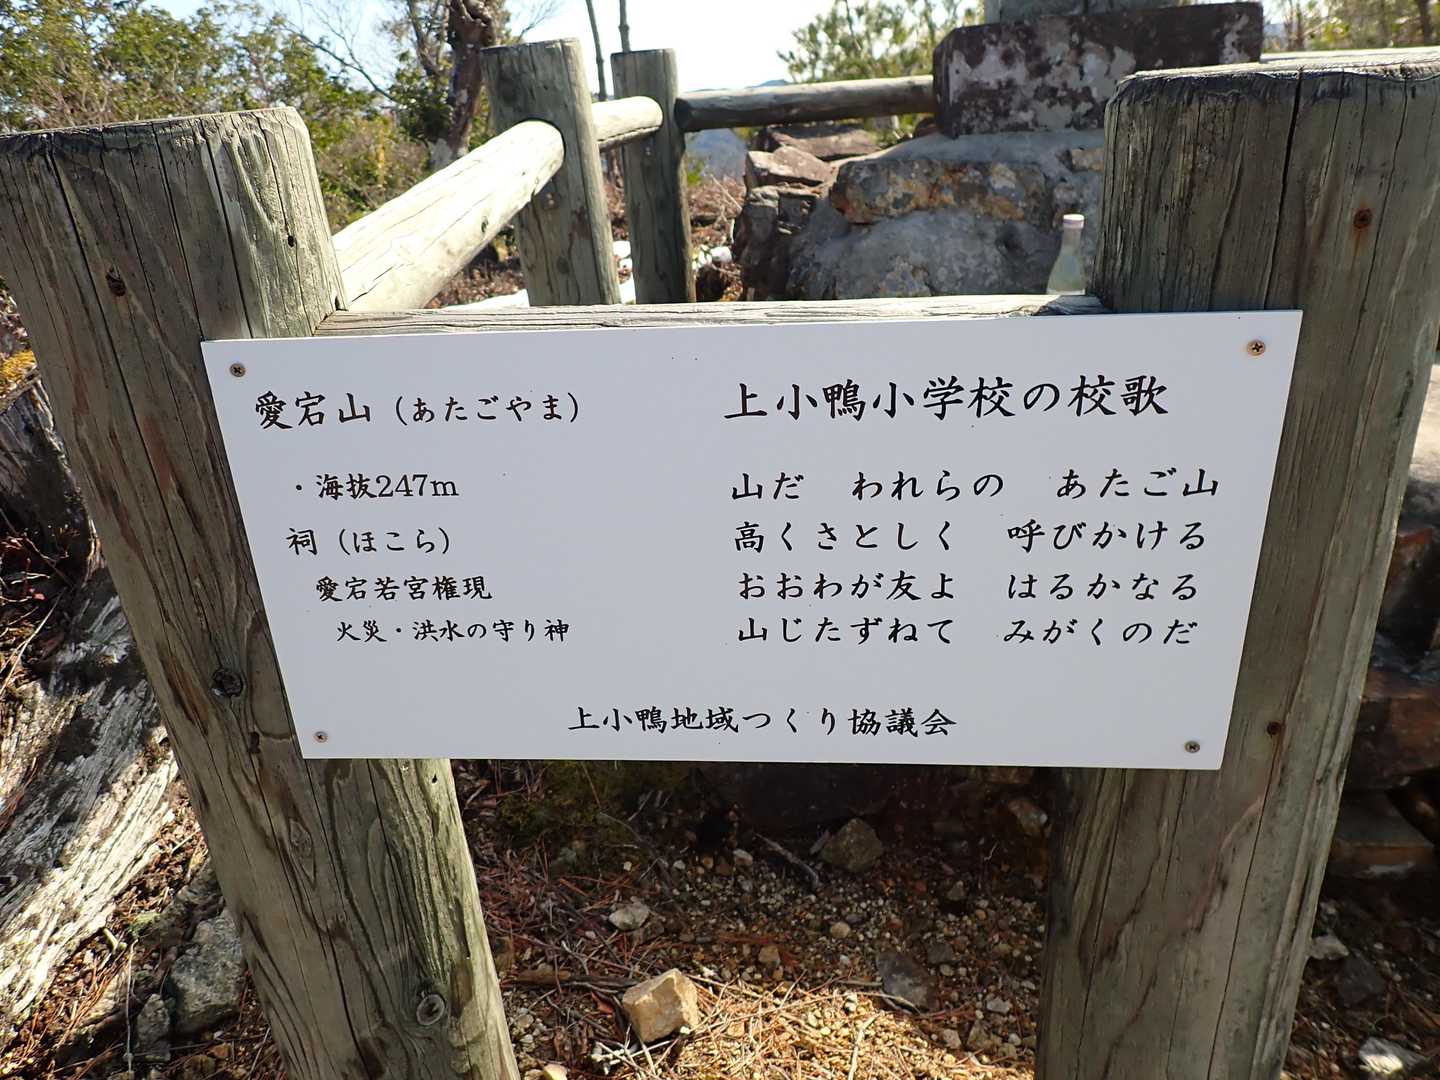 愛宕山（あたごやま）
・海抜247m
祠（ほこら）
愛宕若宮権現
火災・洪水の守り神
上小鴨小学校の校歌
山だ　われらの　あたご山
高くさとしく　呼びかける
おおわが友よ　はるかなる
山じたずねて　みがくのだ
上小鴨地域つくり協議会